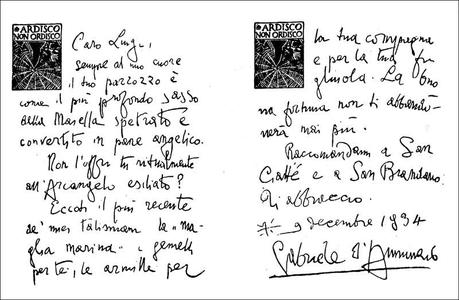 ARDISCO
NON ORDISCO
Caro Luigi,
sempre al mio cuore
il tuo parrozzo è
come il più profondo sasso
della Maiella spetrato e
convertito in pane angelico.
Non l'offri tu ritualmente
all'Arcangelo esiliato?
Eccoti il più recente
de' miei talismani la "ma-
glia marina" i gemelli
per te, le armille per
ARDISCO
NON ORDISCO
la tua compagna
e per la tua fi
gliuola. La buo
na fortuna non ti abbando
nerà mai più.
Raccomandami a San
e a San Brandano.
Ti abbraccio.
9 decembre 1934
Gabriele d'Annunzio